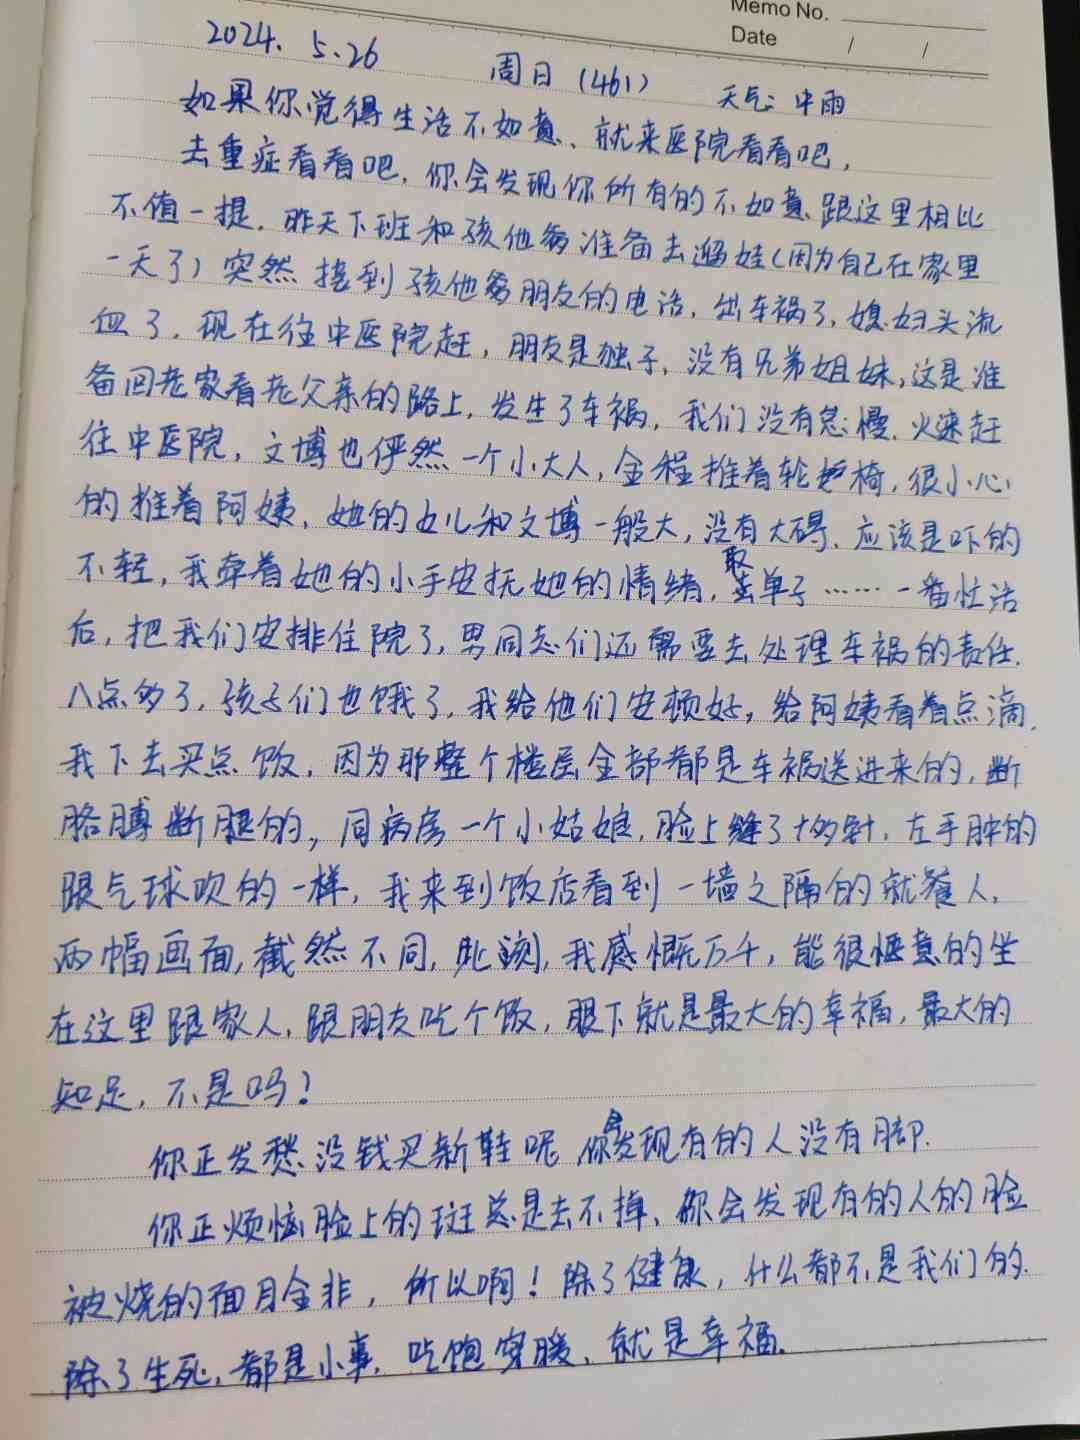 Memo No.
Date / /
2024. 5.26 周日（461） 天气：中雨
如果你觉得生活不如意、就来医院看看吧，
去重症看看吧，你会发现你所有的不如意跟这里相比
不值一提．昨天下班和孩他爹准备去遛娃（因为自己在家里
一天了）突然接到孩他爹朋友的电话，出车祸了，媳妇头流
血了．现在往中医院赶，朋友是独子，没有兄弟姐妹，这是准
备回老家看老父亲的路上，发生了车祸，我们没有怠慢．火速赶
往中医院，文博也俨然一个小大人，全程推着轮椅，很小心
的推着阿姨、她的女儿和文博一般大，没有大碍、应该是吓的
不轻，我牵着她的小手安抚她的情绪，取单子……一番忙活
后，把我们安排住院了，男同志们还需要去处理车祸的责任．
八点多了，孩子们也饿了，我给他们安顿好，给阿姨看着点滴．
我下去买点饭，因为那整个楼层全部都是车祸送进来的，断
胳膊断腿的，同病房一个小姑娘，脸上缝了十多针，左手肿的
跟气球吹的一样，我来到饭店看到一墙之隔的就餐人，
两幅画面，截然不同，此刻，我感慨万千，能很惬意的坐
在这里跟家人，跟朋友吃个饭，眼下就是最大的幸福，最大的
知足，不是吗！
你正发愁没钱买新鞋呢 你会发现有的人没有脚．
你正烦恼脸上的斑总是去不掉、你会发现有的人的脸
被烧的面目全非，所以啊！除了健康，什么都不是我们的．
除了生死，都是小事．吃饱穿暖、就是幸福．